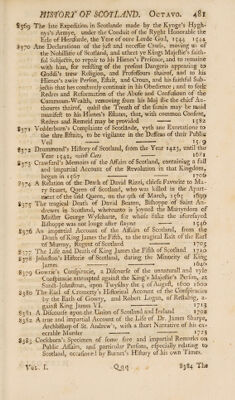 HISTORY OF SCOTLAND. OCTAVO. 481
8369 The late Expedition in Scotlande made by the Kynge's Hygh-
nys's Armye, under the Conduit of the Ryght Honorable the
Erle of Herdforde, the Yere of oure Lorde God, 1544 1544
8370 Ane Declaratioun of the just and necessar Causis, moving us of
the Nobillitie of Scotland, and utheris ye King Majestie's faith-
ful Subjectis, to repair to his Hienes's Presence, and to remane
with him, for resisting of the present Dangeris appearing to
Goddis trew Religion, and Professours thairof, and to his
Hienes's awin Person, Estait, and Croun, and his faithful Sub-
jectis that hes constantly continuit in his Obedience; and to seik
Redres and Reformation of the Abuse and Confusioun of the
Commoun-Wealth, removing from his Majestie the chief Au-
thouris thairof, quhil the Treuth of the samin may be maid
manifest to his Hienes's Estates, that, with commoun Consent,
Redres and Remeid may be provided 1582
8371 Vodderburn's Complainte of Scotlande, wyth ane Exortatione to
the thre Estaits, to be vigilante in the Deffens of their Public
Veil 1549
8372 Drummond's History of Scotland, from the Year 1423, until the
Year 1542, with Cuts
8373 Crawfurd's Memoirs of the Affairs of Scotland, containing a full
and impartial Account of the Revolution in that Kingdom,
begun in 1567 1706
8374 A Relation of the Death of David Rizzi, chief Favorite to Ma-
ry Stuart, Queen of Scotland, who was killed in the Apart-
ment of the said Queen, on the 9th of March, 1565 1699
8375 The tragical Death of David Beaton, Bishoppe of Saint An-
drewes in Scotland, whereunto is joyned the Martyrdom of
Maister George Wyseharte, for whose sake the aforesayed
Bishoppe was not longe after slayne 1546
8376 An impartial Account of the Affairs of Scotland, from the
Death of King James the Fifth, to the tragical Exit of the Earl
of Murray, Regent of Scotland 1705
8377 The Life and Death of King James the Fifth of Scotland 1710
8378 Johnston's Historie of Scotland, during the Minority of King
James 1646
8379 Gowrie's Conspiracie, a Discourse of the unnaturall and vyle
Conspiracie attempted against the King's Majestie's Person, at
Sanct-Johnstoun, upon Twysday the 5 of August, 1600 1600
8380 The Earl of Cromerty's Historical Account of the Conspiracies
by the Earls of Gowry, and Robert Logan, of Restalrig, a-
gainst King James VI. 1713
8381 A Discourse upon the Union of Scotland and Ireland 1702
8382 A true and impartial Account of the Life of Dr. James Sharpe,
Archbishop of St. Andrew's, with a short Narrative of his ex-
ecrable Murder 1723
8383 Cockburn's Specimen of some free and impartial Remarks on
Public Affairs, and particular Persons, especially relating to
Scotland, occasioned by Burnet's History of his own Times.
VOL. I. Qqq 8384 The